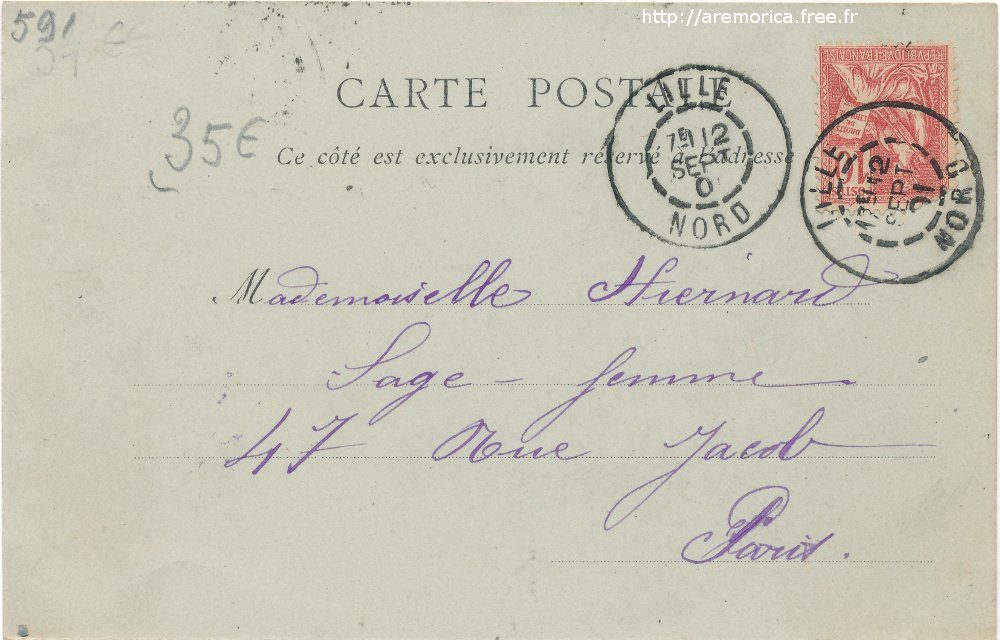 http://aremorica.free.fr
591
35€
CARTE POSTALE
Ce côté est exclusivement réservé à l'adresse
LILLE
7E 12
SEPT
01
NORD
REPVBLIQVE FRANÇAISE
DROITS
DE
10
LILLE
12
SEPT
01
NORD
Mademoiselle Hiernard
Sage-femme
47 Rue Jacob
Paris.